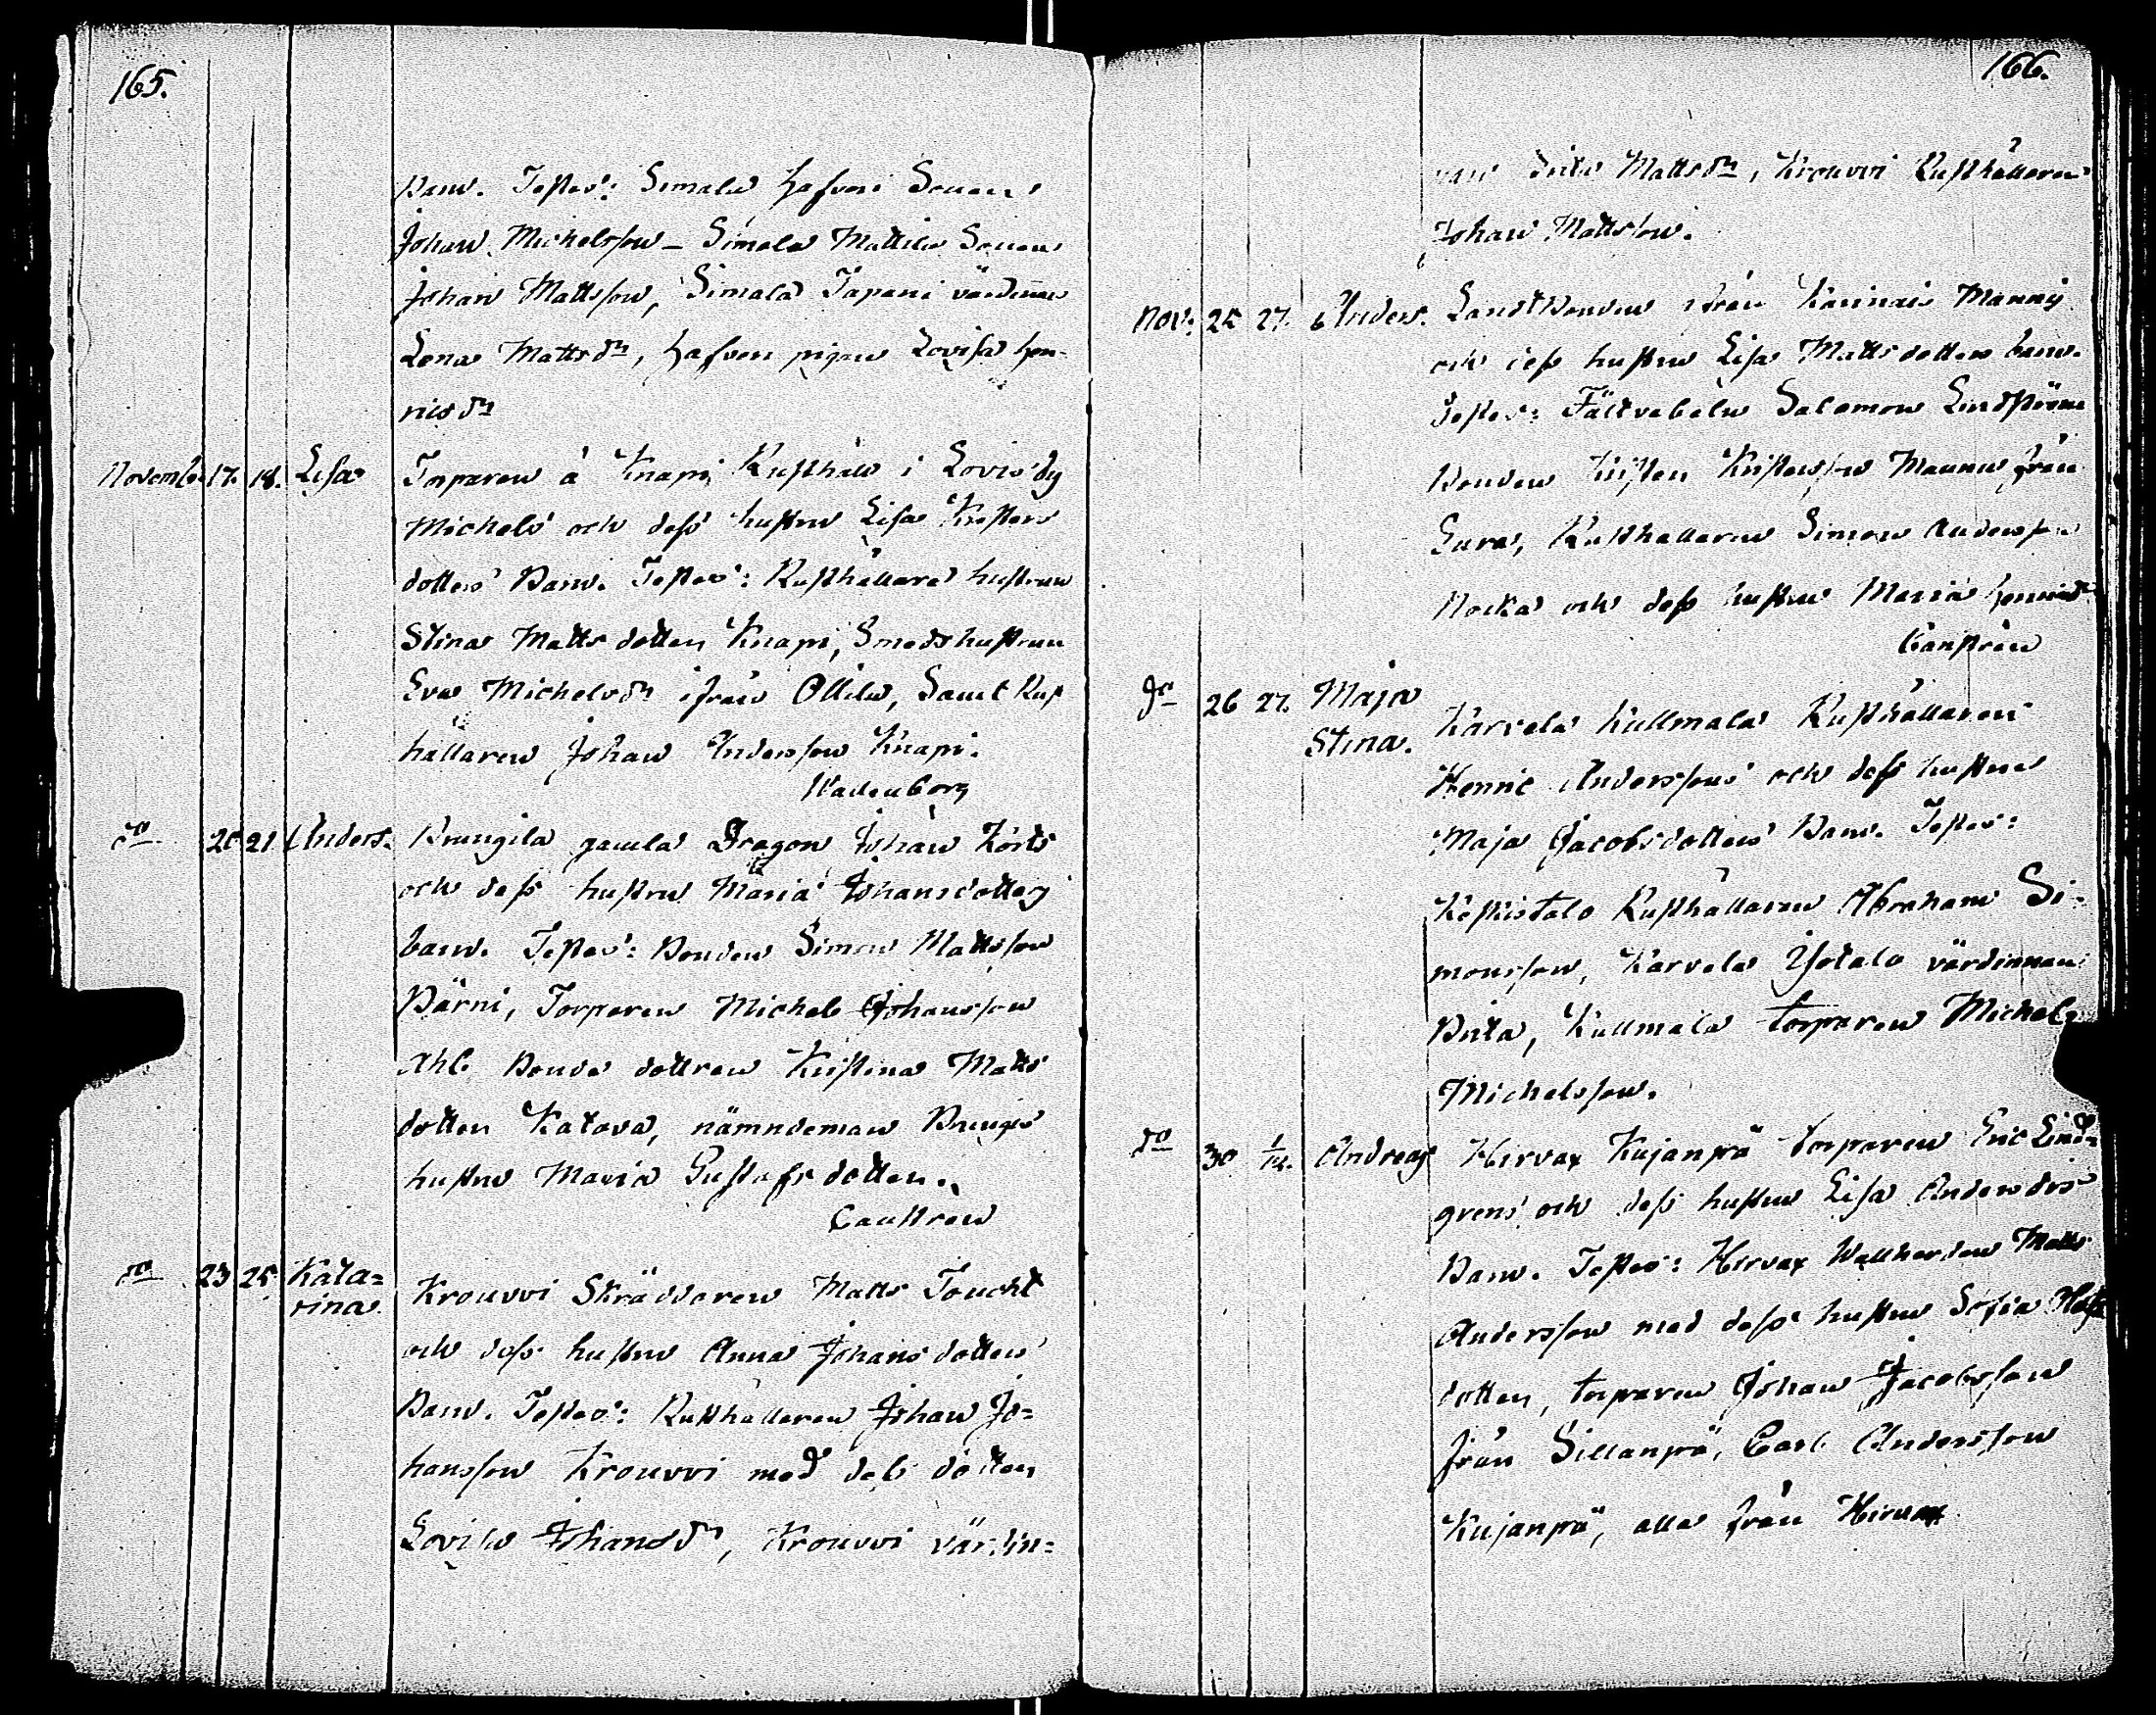 165.
Barn. Testes: Simala Hafveri Sonen
Johan Michelsson – Simala Mattila Sonen
Johan Mattsson, Simala Tapani värdinnan
Lena Matts dr, Hafveri pigan Lovisa Hen-
rics dr
Novemb. 17. 18. Lisa Torparen å Knapi Rusthåll i Lovis by
Michels och dess hustru Lisa Kristers
dotters Barn. Testes: Rusthållare hustrun
Stina Matts dotter Knapi, Smeds hustrun
Eva Michels dr ifrån Ollila, Samt Rust
hållaren Johan Andersson Knapi.
Wadenborg
do 20 21 Anders. Krungila gamla Dragon Johan Körts
och dess hustru Maria Johansdotters
barn. Testes: Bonden Simon Mattsson
Bärni, Torparen Michel Johansson
Ahl Bonde dottren Kristina Matts
dotter Katava, nämndeman
hustru Maria Gustafs dotter.
Castren
do 23 25 Kata=
rina. Krouvvi Skräddaren Matts Toucht
och dess hustru Anna Johans dotters
Barn. Testes: Rusthållaren Johan Jo=
hansson Krouvvi med dess dotter
Lovisa Johans dr, Krouvvi värdin=
166.
nan Brita Matts dr, Krouvvi Rusthållaren
Johan Mattsson.
Nov. 25 27. Anders. Landtbonden ifrån Karinais Manni
och dess hustru Lisa Matts dotters barn.
Testes: Fältvebeln Salomon Lindström
Bonden Krister Kristersson Maunu från
Eura, Rusthållaren Simon Andersson
Nocka och dess hustru Maria Henricsdr
Castrén
do 26 27. Maja
Stina. Karvela Kullmala Rusthållaren
Henric Anderssons och dess hustru
Maja Jacobsdotters Barn. Testes:
Keskistalo Rusthållaren Abraham Si-
monsson, Karvela Ysotalo värdinnan
Brita, Kullmala torparen Michel
Michelsson.
do 30 1/12. Andreas Hirvax Kujanpä torparen Eric Lind=
grens och dess hustru Lisa Anders drs
Barn. Testes: Hirvax Wallherden Matts
Andersson med dess hustru Sofia
dotter, torparen Johan Jacobsson
från Sillanpä, Carl Andersson
Kujanpä, alla från Hirvax